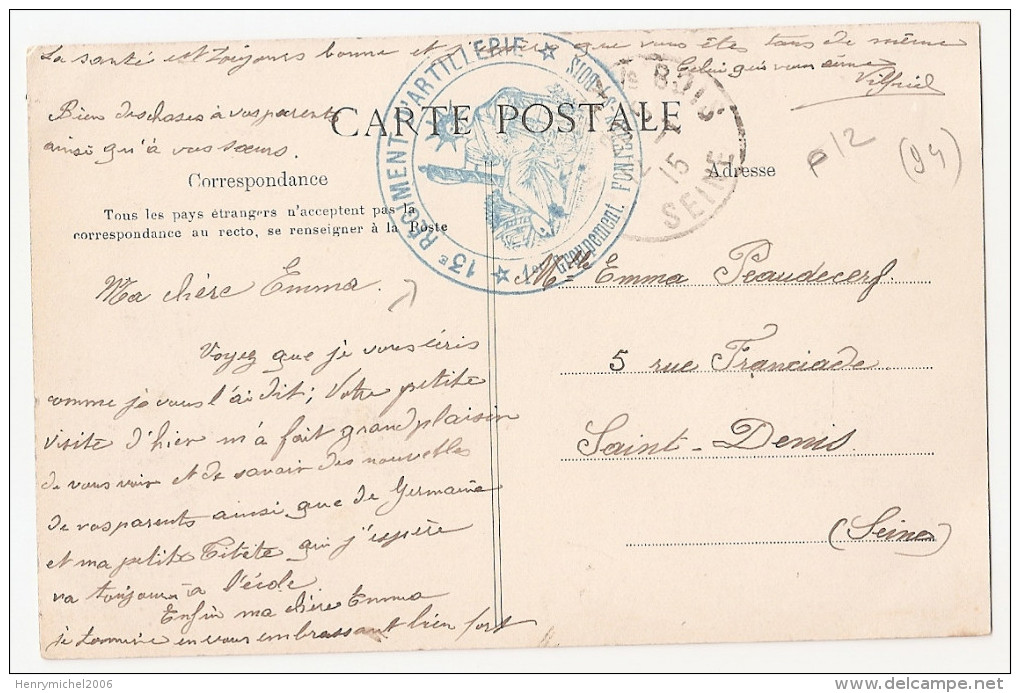 La santé est toujours bonne et j'espère que vous êtes tous de même
Celui qui vous aime
Vilfrid
Bien des choses à vos parents
ainsi qu'à vos sœurs.
CARTE POSTALE
13E RÉGIMENT D'ARTILLERIE
1er Groupement. FONTENAY-S-BOIS
S BOIS
15
SEINE
P12
(94)
Correspondance
Adresse
Tous les pays étrangers n'acceptent pas la
correspondance au recto, se renseigner à la Poste
Ma chère Emma.
Voyez que je vous écris
comme je vous l'ai dit; Votre petite
visite d'hier m'a fait grand plaisir
de vous voir et de savoir des nouvelles
de vos parents ainsi que de Germaine
et ma petite Titète qui j'espère
va toujours à l'école
Enfin ma chère Emma
je termine en vous embrassant bien fort
Mlle Emma Peaudecerf
5 rue Franciade
Saint-Denis
(Seine)
Henrymichel2006
delcampe.net